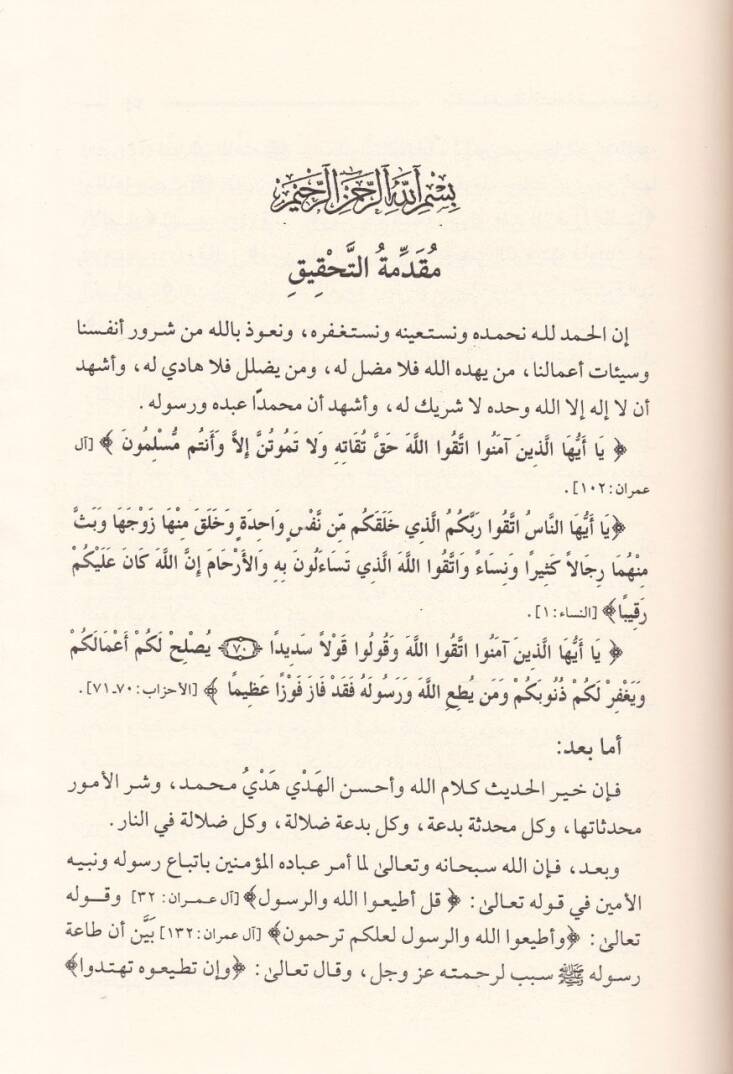 بِسْمِ اللهِ الرَّحْمٰنِ الرَّحِيْمِ
مُقَدِّمَةُ التَّحْقِيقِ
إن الحمد لله نحمده ونستعينه ونستغفره، ونعوذ بالله من شرور أنفسنا
وسيئات أعمالنا، من يهده الله فلا مضل له، ومن يضلل فلا هادي له، وأشهد
أن لا إله إلا الله وحده لا شريك له، وأشهد أن محمدًا عبده ورسوله.
﴿ يَا أَيُّهَا الَّذِينَ آمَنُوا اتَّقُوا اللَّهَ حَقَّ تُقَاتِهِ وَلا تَمُوتُنَّ إِلاَّ وَأَنتُم مُّسْلِمُونَ ﴾ [آل
عمران:١٠٢].
﴿يَا أَيُّهَا النَّاسُ اتَّقُوا رَبَّكُمُ الَّذِي خَلَقَكُم مِّن نَّفْسٍ وَاحِدَةٍ وَخَلَقَ مِنْهَا زَوْجَهَا وَبَثَّ
مِنْهُمَا رِجَالاً كَثِيرًا وَنِسَاءً وَاتَّقُوا اللَّهَ الَّذِي تَسَاءَلُونَ بِهِ وَالأَرْحَامَ إِنَّ اللَّهَ كَانَ عَلَيْكُمْ
رَقِيبًا﴾ [النساء:١].
﴿ يَا أَيُّهَا الَّذِينَ آمَنُوا اتَّقُوا اللَّهَ وَقُولُوا قَوْلاً سَدِيدًا ﴿٧٠﴾ يُصْلِحْ لَكُمْ أَعْمَالَكُمْ
وَيَغْفِرْ لَكُمْ ذُنُوبَكُمْ وَمَن يُطِعِ اللَّهَ وَرَسُولَهُ فَقَدْ فَازَ فَوْزًا عَظِيمًا ﴾ [الأحزاب:٧٠ـ٧١].
أما بعد:
فإن خير الحديث كلام الله وأحسن الهَدْي هَدْيُ محمد، وشر الأمور
محدثاتها، وكل محدثة بدعة، وكل بدعة ضلالة، وكل ضلالة في النار.
وبعد، فإن الله سبحانه وتعالىٰ لما أمر عباده المؤمنين باتباع رسوله ونبيه
الأمين في قوله تعالىٰ: ﴿ قل أطيعوا الله والرسول﴾ [آل عمران: ٣٢] وقوله
تعالىٰ: ﴿وأطيعوا الله والرسول لعلكم ترحمون﴾ [آل عمران:١٣٢] بَيَّن أن طاعة
رسوله ﷺ سبب لرحمته عز وجل، وقال تعالىٰ: ﴿وإن تطيعوه تهتدوا﴾